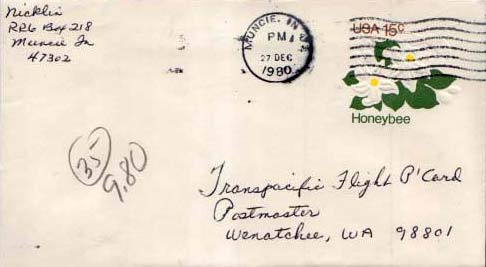 Nicklin
RR6 Box 218
Muncie In
47302
MUNCIE, IN
PM
27 DEC
1980
USA 15c
Honeybee
35
9.80
Transpacific Flight P'Card
Postmaster
Wenatchee, WA 98801